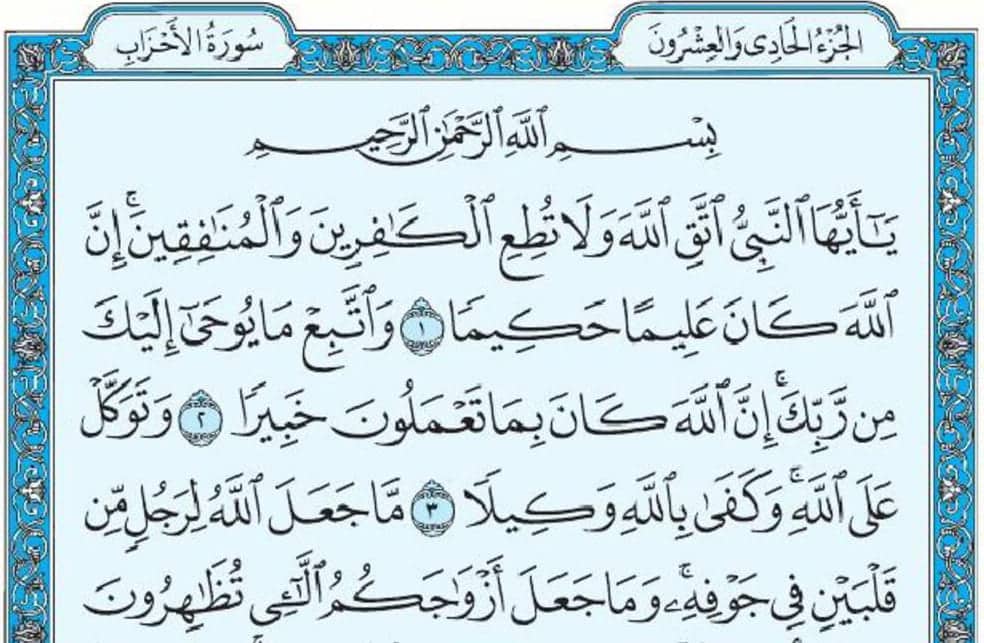 الجُزْءُ الحَادِى وَالعِشْرُونَ
سُورَةُ الأَحْزَابِ
بِسْمِ ٱللَّهِ ٱلرَّحْمَٰنِ ٱلرَّحِيمِ
يَٰٓأَيُّهَا ٱلنَّبِىُّ ٱتَّقِ ٱللَّهَ وَلَا تُطِعِ ٱلْكَٰفِرِينَ وَٱلْمُنَٰفِقِينَۚ إِنَّ
ٱللَّهَ كَانَ عَلِيمًا حَكِيمًا ١ وَٱتَّبِعْ مَا يُوحَىٰٓ إِلَيْكَ
مِن رَّبِّكَۚ إِنَّ ٱللَّهَ كَانَ بِمَا تَعْمَلُونَ خَبِيرًا ٢ وَتَوَكَّلْ
عَلَى ٱللَّهِۚ وَكَفَىٰ بِٱللَّهِ وَكِيلًا ٣ مَّا جَعَلَ ٱللَّهُ لِرَجُلٍ مِّن
قَلْبَيْنِ فِى جَوْفِهِۦۚ وَمَا جَعَلَ أَزْوَٰجَكُمُ ٱلَّٰٓـِٔى تُظَٰهِرُونَ